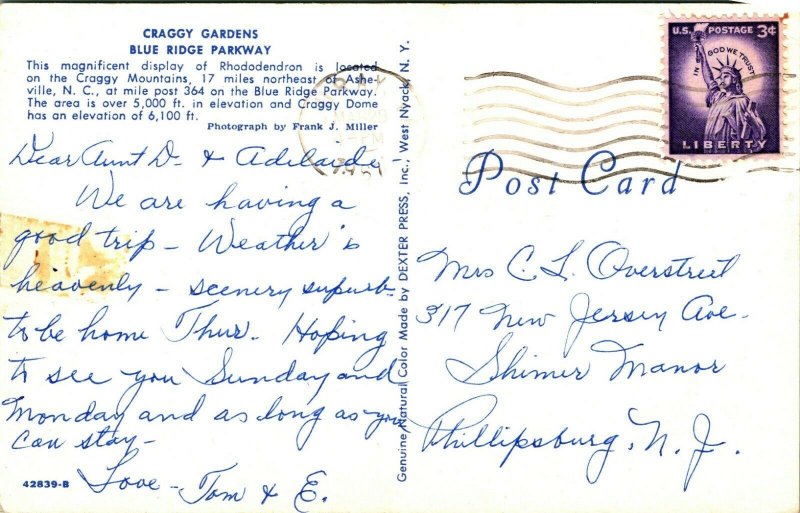 CRAGGY GARDENS
BLUE RIDGE PARKWAY
This magnificent display of Rhododendron is located
on the Craggy Mountains, 17 miles northeast of Ashe-
ville, N. C., at mile post 364 on the Blue Ridge Parkway.
The area is over 5,000 ft. in elevation and Craggy Dome
has an elevation of 6,100 ft.
Photograph by Frank J. Miller
Dear Aunt D. & Adelaide
We are having a
good trip - Weather is
heavenly - scenery superb
to be home Thur. Hoping
to see you Sunday and
Monday and as long as you
can stay -
Love - Tom & E.
42839-B
Genuine Natural Color Made by DEXTER PRESS, Inc., West Nyack, N. Y.
U.S. POSTAGE 3¢
IN GOD WE TRUST
LIBERTY
Post Card
Mrs C. L. Overstreet
317 New Jersey Ave.
Shimer Manor
Phillipsburg, N. J.